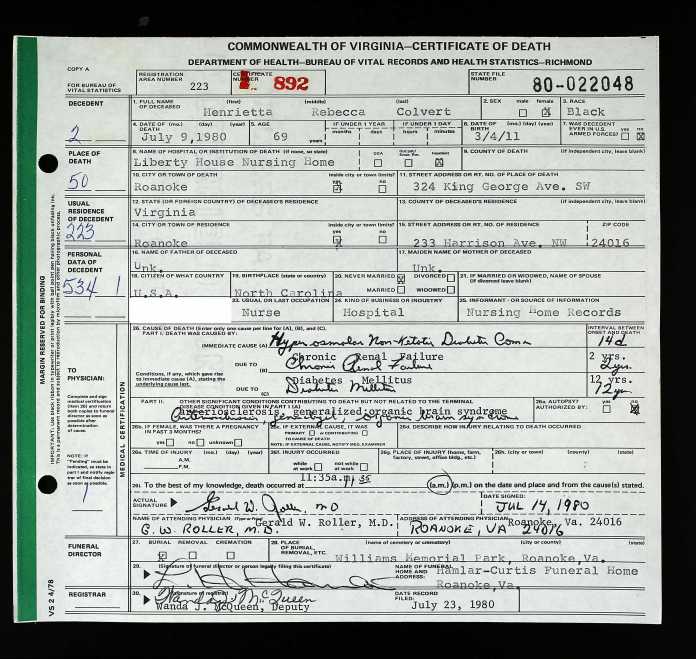 COMMONWEALTH OF VIRGINIA—CERTIFICATE OF DEATH
DEPARTMENT OF HEALTH—BUREAU OF VITAL RECORDS AND HEALTH STATISTICS—RICHMOND
COPY A
FOR BUREAU OF VITAL STATISTICS
REGISTRATION AREA NUMBER 223
CERTIFICATE NUMBER 892
STATE FILE NUMBER 80-022048
DECEDENT
1. FULL NAME OF DECEASED (first) (middle) (last) 2. SEX male female 3. RACE
Henrietta Rebecca Colvert Black
4. DATE OF DEATH (mo.) (day) (year) 5. AGE IF UNDER 1 YEAR months days IF UNDER 1 DAY hours minutes 6. DATE OF BIRTH (mo.) (day) (year) 7. WAS DECEDENT EVER IN U.S. ARMED FORCES? yes no
2
July 9,1980 69 years 3/4/11
PLACE OF DEATH
8. NAME OF HOSPITAL OR INSTITUTION OF DEATH (if none, so state) DOA Inpatient 9. COUNTY OF DEATH (if independent city, leave blank)
Liberty House Nursing Home
50
10. CITY OR TOWN OF DEATH inside city or town limits? yes no 11. STREET ADDRESS OR RT. NO. OF PLACE OF DEATH
Roanoke 324 King George Ave. SW
USUAL RESIDENCE OF DECEDENT
12. STATE (OR FOREIGN COUNTRY) OF DECEASED'S RESIDENCE 13. COUNTY OF DECEASED'S RESIDENCE (if independent city, leave blank)
Virginia
223
14. CITY OR TOWN OF RESIDENCE inside city or town limits? yes no 15. STREET ADDRESS OR RT. NO. OF RESIDENCE ZIP CODE
Roanoke 233 Harrison Ave. NW 24016
PERSONAL DATA OF DECEDENT
16. NAME OF FATHER OF DECEASED 17. MAIDEN NAME OF MOTHER OF DECEASED
Unk. Unk.
534 1
18. CITIZEN OF WHAT COUNTRY 19. BIRTHPLACE (state or country) 20. NEVER MARRIED DIVORCED MARRIED WIDOWED 21. IF MARRIED OR WIDOWED, NAME OF SPOUSE (if divorced leave blank)
U.S.A. North Carolina
23. USUAL OR LAST OCCUPATION 24. KIND OF BUSINESS OR INDUSTRY 25. INFORMANT - OR SOURCE OF INFORMATION
Nurse Hospital Nursing Home Records
MARGIN RESERVED FOR BINDING
MEDICAL CERTIFICATION
TO PHYSICIAN:
Complete and sign medical certification (item 26) and return both copies to funeral director as soon as possible after determination of cause.
NOTE: If "Pending" must be indicated, as state in part I and notify registrar of final decision as soon as possible.
1
26. CAUSE OF DEATH (Enter only one cause per line for (A), (B), and (C).
PART I. DEATH WAS CAUSED BY: INTERVAL BETWEEN ONSET AND DEATH
IMMEDIATE CAUSE (A) Hyperosmolar Non-Ketotic Diabetic Coma 14d
DUE TO (B) Chronic Renal Failure 2 yrs.
Chronic Renal Failure 2 yrs
Conditions, if any, which gave rise to immediate cause (A), stating the underlying cause last.
DUE TO (C) Diabetes Mellitus 12 yrs.
Diabetes Mellitus 12 yrs
PART II. OTHER SIGNIFICANT CONDITIONS CONTRIBUTING TO DEATH BUT NOT RELATED TO THE TERMINAL DISEASE CONDITION GIVEN IN PART I (A) 26a. AUTOPSY? AUTHORIZED BY: yes no
Arteriosclerosis, generalized, organic brain syndrome
Arteriosclerosis, generalized, organic brain syndrome
26b. IF FEMALE, WAS THERE A PREGNANCY IN PAST 3 MONTHS? yes no unknown
26c. IF EXTERNAL CAUSE, IT WAS PRIMARY or CONTRIBUTING TO CAUSE OF DEATH NOTE: IF EXTERNAL CAUSE, NOTIFY MED. EXAMINER
26d. DESCRIBE HOW INJURY RELATING TO DEATH OCCURRED
26e. TIME OF INJURY (mo.) (day) (year) A.M. P.M. 26f. INJURY OCCURRED while at work not while at work 26g. PLACE OF INJURY (home, farm, factory, street, office bldg., etc.) 26h. (city or town) (county) (state)
11:35a.m. 11:35
26i. To the best of my knowledge, death occurred at (a.m.) (p.m.) on the date and place and from the cause(s) stated.
ACTUAL SIGNATURE Gerald W. Roller, MD DATE SIGNED: JUL 14, 1980
NAME OF ATTENDING PHYSICIAN (Type or Print) Gerald W. Roller, M.D. ADDRESS OF ATTENDING PHYSICIAN Roanoke, Va. 24016
G. W. ROLLER, M.D. ROANOKE, VA 24016
FUNERAL DIRECTOR
27. BURIAL REMOVAL CREMATION 28. PLACE OF BURIAL, REMOVAL, ETC. (name of cemetery or crematory) (city or county) (state)
Williams Memorial Park, Roanoke,Va.
29. (Signature of funeral director or person legally filing this certificate) NAME OF FUNERAL HOME AND ADDRESS: Hamlar-Curtis Funeral Home
Roanoke,Va.
REGISTRAR
30. (Signature of registrar) Wanda J. McQueen DATE RECORD FILED:
Wanda J. McQueen, Deputy July 23, 1980
VS 2 4/78